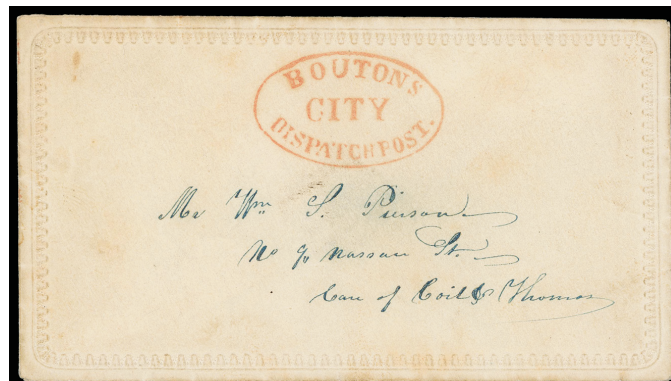 BOUTONS
CITY
DISPATCH POST.
Mr Wm S. Pierson
No 90 Nassau St.
Care of Coit & Thomas